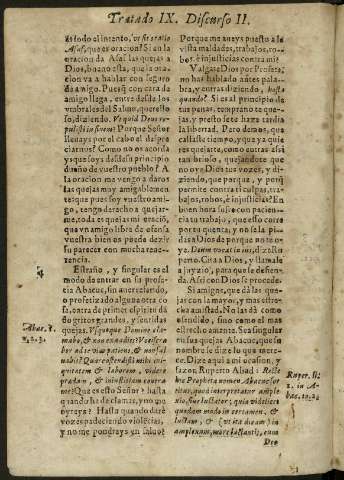 Tratado IX. Discurso II.
es todo el intento, ut sit oratio
Asaf, que es oracion? Si en la
oracion da Asaf las quejas a
Dios, bueno esta, que la ora-
cion va a hablar con seguro
de amigo. Pues con cara da
amigo llega, entre desde los
vmbrales del Salmo, querello
so, diziendo. Vt quid Deus re-
pulisti in finem? Porque Señor
llevays por el cabo el des-
preciarnos? Como no os acordays
y que soys desde su principio
dueño de vuestro pueblo? A
la oracion me vengo a daros
las quejas muy amigablemen-
te: que pues soy vuestro ami-
go, tengo derecho a quejar-
me, toda es quejas mi oració,
que vn amigo libre de ofensa
vuestra bien os puede dezir
su parecer con mucha reue-
rencia.
Estraño, y singular es el
modo de entrar en su profe-
cia Abacuc, sin auer
o profetizado alguna otra co
sa, entra de primer espiritu dã
do gritos grandes, y sentidas
quejas. Vsquequo Domine clama-
bo, & non exaudies? Vociferabor
ad te vim patiens, & non sal
uabis? Quare ostendisti mihi ini-
quitatem & laborem, videre
prædam, & iniustitiam contra
me? Que es esto Señor? hasta
quando ha de clamar, y no me
oyreys? Hasta quando daré
vozes padeciendo violécias,
y no me pondreys en saluo?
Abac. 1.
n. 2. 3.
Porque me aueys puesto a la
vista maldades, trabajos, ro-
bos, è injusticias contra mi?
Valgate Dios por Profeta,
no has hablado aũ pala-
bra, y entras diziendo, hasta
quando? Si es al principio de
tus penas, tempranо te que-
jas, y presto se te haze tardia
la libertad. Pero demos, que
casi haste tiempo, y que ya quie
res quejarte, como entras assi
tan brioso, quejandote que
no oye Dios tus vozes, y di-
ziendo, que porque, y porq̃
permite contra ti culpas, tra-
bajos, robos, è injusticias? En
bien hora sufre con pacien-
cia tu trabajo, que esto corre
por tu quenta, y no se la pi-
das a Dios de porque no te o-
ye. Deum vocat in ius, dize Ru
perto. Cita a Dios, y llamale
a juyzio, para que se defien-
da. Assi con Dios se procede.
Si amigos, que da las que-
jas con la mayor, y mas estre-
cha amistad. No las dà como
ofendido, sino como el mas
estrecho amante. Sea singular
en sus quejas Abacuc, que su
nombre le dize lo que intere-
ce. Dize aqui a mi ocasion, y
sazon, Ruperto Abad: Recte
hic Propheta nomen Abacuc sor
titus, quod interpretatur amplexi
xio, siue luctator; quia videlicet
quodam modo in certamen, &
luctam, & (vt ita dicam) in
amplexum, more luctantis, cum
Deo
Ruper. li:
1. in A-
bac. to. 2.